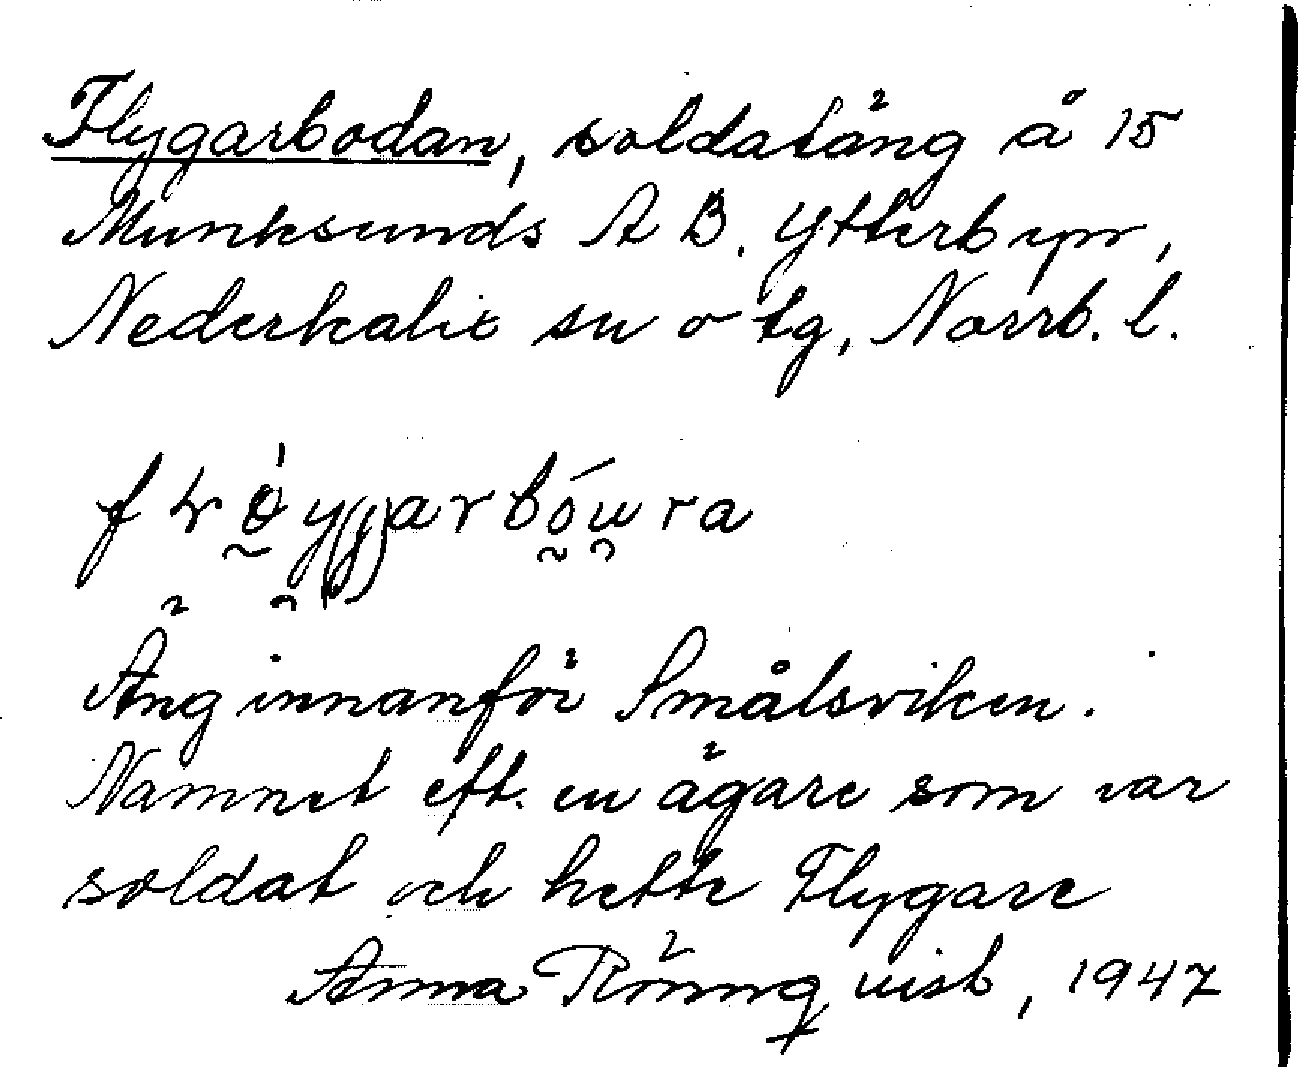 Flygarbodan, soldatäng å 15
Munksunds AB. Ytterbyn,
Nederkalix sn o tg, Norrb. l.
Äng innanför Smålsviken.
Namnet eft. en ägare som var
soldat och hette Flygare
Anna Rönnqvist, 1947